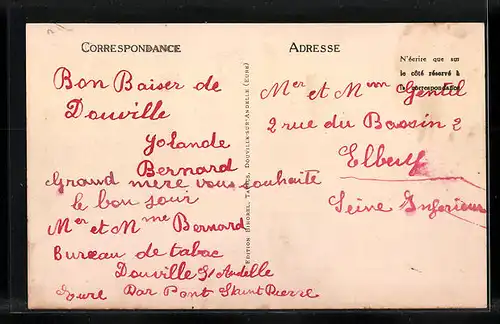 CORRESPONDANCE
Bon Baiser de
Douville
Yolande
Bernard
Grand mère vous souhaite
le bon jour
Mer et Mme Bernard
Bureau de tabac
Douville S/ Andelle
Eure Par Pont Saint Pierre
EDITION HINOREL, TABACS, DOUVILLE-SUR-ANDELLE (EURE)
ADRESSE
N'écrire que sur
le côté réservé à
la correspondance
Mer et Mme Gentil
2 rue du Bassin 2
Elbeuf
Seine Inferieure